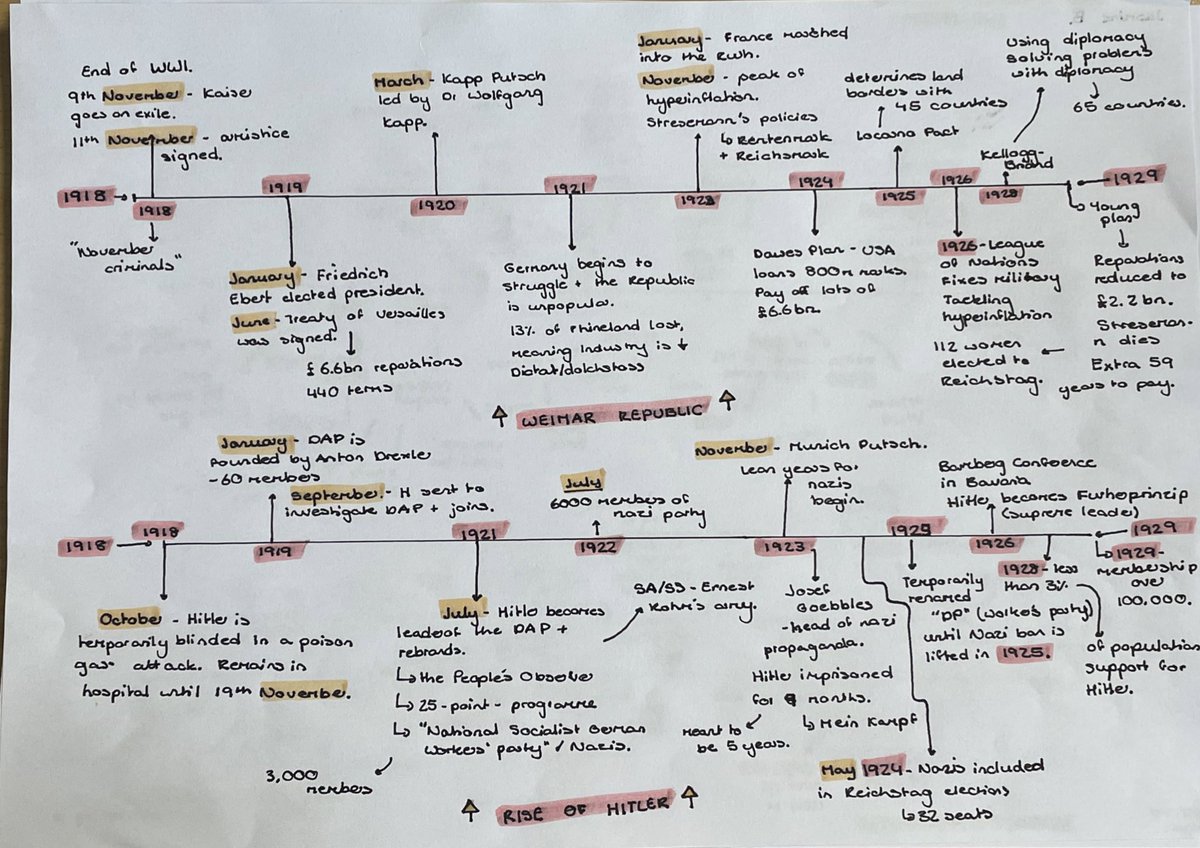 End of WWI.
9th November - Kaiser
goes on exile.
11th November - armistice
signed.
March - Kapp Putsch
led by Dr Wolfgang
Kapp.
January - France marched
into the Ruhr.
November - peak of
hyperinflation.
Stresemann's policies
↳ Rentenmark
+ Reichsmark
determines land
borders with
45 countries
Locarno Pact
Using diplomacy
solving problems
with diplomacy
65 countries.
Kellogg-
Briand
1918
1918
1919
1920
1921
1923
1924
1925
1926
1928
1929
"November
criminals"
January - Friedrich
Ebert elected president.
June - Treaty of Versailles
was signed.
£6.6bn reparations
440 terms
Germany begins to
struggle + the Republic
is unpopular.
13% of rhineland lost,
meaning industry is ↓
Diktat/dolchstoss
Dawes Plan - USA
loans 800m marks.
Pay off lots of
£6.6bn.
1926 - League
of Nations
Fixes military
Tackling
hyperinflation
112 women
elected to
Reichstag.
Young
plan
Reparations
reduced to
£2.2bn.
Streseman-
n dies
Extra 59
years to pay.
WEIMAR REPUBLIC
January - DAP is
founded by Anton Drexler
- 60 members
September - H sent to
investigate DAP + joins.
July
6000 members of
nazi party
November - Munich Putsch.
Lean years for
nazis
begin.
Bamberg Conference
in Bavaria
Hitler becomes Furhoprincip
(supreme leader)
1918
1918
1919
1921
1922
1923
1925
1926
1929
October - Hitler is
temporarily blinded in a poison
gas attack. Remains in
hospital until 19th November.
July - Hitler becomes
leader of the DAP +
rebrands.
↳ the People's Observer
↳ 25-point-programme
↳ "National Socialist German
Workers' party" / Nazis.
3,000
members
SA/SS - Ernest
Rohm's army.
Josef
Goebbles
- head of nazi
propaganda.
Hitler imprisoned
for 9 months.
↳ Mein Kampf
meant to
be 5 years.
May 1924 - Nazis included
in Reichstag elections
↳ 32 seats
Temporarily
renamed
"DP" (Worker's party)
until Nazi ban is
lifted in 1925.
1928 - less
than 3%
of population
support for
Hitler.
1929 -
membership
over
100,000.
RISE OF HITLER